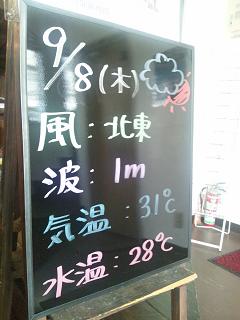 9/8(木)
風:北東
波:1m
気温:31℃
水温:28℃